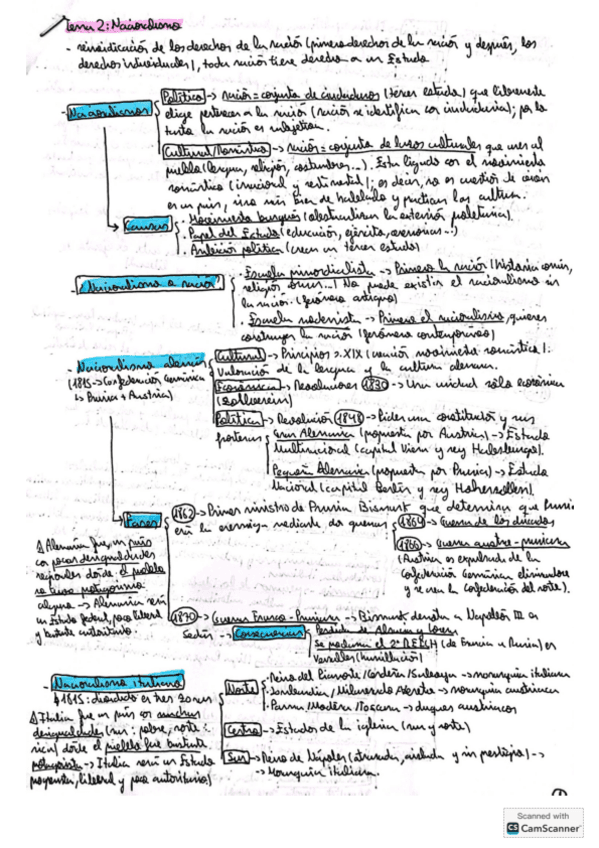 Tema 2: Nacionalismo
- reivindicación de los derechos de la nación (primero derechos de la nación y después, los
derechos individuales), toda nación tiene derecho a un Estado
- Nacionalismos
Político -> nación = conjunto de individuos (tener estado) que libremente
elige pertenecer a la nación (nación se identifica con ciudadanía); por lo
tanto la nación es subjetiva.
Cultural/Romántico -> nación = conjunto de lazos culturales que unen al
pueblo (lengua, religión, costumbres...). Esta ligado con el movimiento
romántico (irracional y sentimental); es decir, no es cuestión de
es un país, sino más bien de hablarlo y practicar la cultura.
Causas
· Movimiento burgués
· Papel del Estado (educación, ejército, ...)
· Ambición política (crear un / tener estado)
- ¿Nacionalismo o nación?
· Escuela primordialista -> Primero la nación (historia común,
religión común...) No puede existir el nacionalismo sin
la nación. (fenómeno antiguo)
· Escuela modernista -> Primero el nacionalismo, quieres
construyes la nación (fenómeno contemporáneo)
- Nacionalismo alemán
(1815 -> Confederación Germánica
↳ Prusia + Austria)
Cultural -> Principios s. XIX (unión movimiento romántico).
Valoración de la lengua y la cultura alemana.
Económica -> Revoluciones 1830 -> Una unidad sólo económica
(Zollverein)
Política -> Revolución 1848 -> Piden una constitución y sus
fronteras
Gran Alemania (propuesta por Austria) -> Estado
Multinacional (capital Viena y rey Habsburgo).
Pequeña Alemania (propuesta por Prusia) -> Estado
Nacional (capital Berlín y rey Hohenzollern).
Fases
1862 -> Primer ministro de Prusia Bismark que determina que Prusia
mediante dos guerras
1864 -> Guerra de los ducados
1866 -> Guerra austro-prusiana
(Austria es expulsada de la
Confederación Germánica eliminándose
y se crea la Confederación del norte).
1870 -> Guerra Franco-Prusiana -> Bismark derrota a Napoleón III en
Sedán -> Consecuencias
Perdida de Alsacia y Lorena
Se proclama el 2º REICH (de Francia a Prusia) en
Versalles (humillación)
Alemania fue un país
con pocas desigualdades
regionales donde el pueblo
no tuvo protagonismo
alguno -> Alemania será
un Estado federal, poco liberal
y bastante autoritario
- Nacionalismo italiano
1815: dividido en tres zonas
Italia fue un país con muchas
desigualdades (sur: pobre, norte:
rica) donde el pueblo fue bastante
protagonista -> Italia será un Estado
liberal y poco autoritario
Norte
· Reino del Piamonte/Cerdeña/Saboya -> monarquía italiana
· Lombardía / Véneto -> monarquía austriaca
· Parma/Módena/Toscana -> duques austriacos
Centro -> Estados de la iglesia (sur y norte)
Sur -> Reino de Nápoles (atrasado, aislado y sin prestigio) ->
-> Monarquía italiana.
1
Scanned with
CS CamScanner